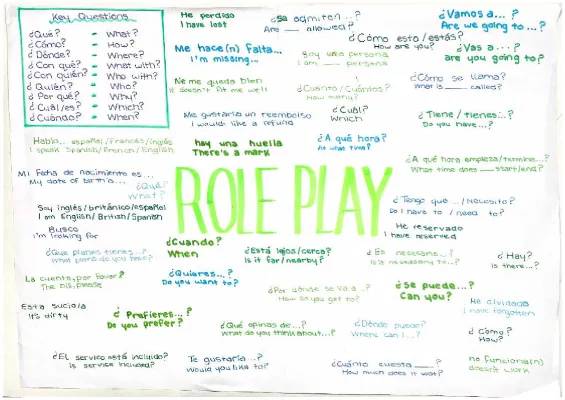 Key Questions
¿Qué? - What?
¿Cómo? - How?
¿Dónde? - Where?
¿Con qué? - What with?
¿Con quién? - Who with?
¿Quién? - Who?
¿Por qué? - Why?
¿Cuál/es? - Which?
¿Cuándo? - When?
He perdido
I have lost
¿Se admiten...?
Are ___ allowed?
¿Vamos a...?
Are we going to...?
¿Cómo esta/estás?
How are you?
Me hace(n) Falta...
I'm missing...
Soy una persona
I am ___ persona
¿Vas a...?
are you going to?
Ne me queda bien
It doesn't fit me well
¿Cuanto/Cuantos?
How many?
¿Cómo se llama?
What is ___ called?
Me gustaría un reembolso
I would like a refund
¿Cuál?
Which
¿Tiene/tienes...?
Do you have...?
Hablo... español/Francés/inglés
I speak Spanish/French/English
hay una huella
There's a mark
¿A qué hora?
At what time?
¿A qué hora empieza/termina...?
What time does ___ start/end?
Mi Fecha de nacimiento es...
My date of birth is...
¿Qué?
What?
ROLE PLAY
Soy inglés/británico/español
I am English/British/Spanish
¿Tengo que .../Necesito?
Do I have to / need to?
Busco
I'm looking for
He reservado
I have reserved
¿Que planes tienes...?
What plans do you have?
¿Cuando?
When
¿Está lejos/cerca?
Is it far/nearby?
¿Es necesario...?
Is it necessary to...?
¿Hay?
Is there...?
La cuenta, por favor
The bill, please
¿Quieres...?
Do you want to?
¿Por dónde se va a..?
How do you get to?
¿Se puede...?
Can you?
He olvidado
I have forgotten
Esta sucio/a
It's dirty
¿Prefieres...?
Do you prefer?
¿Qué opinas de...?
What do you think about...?
¿Dónde puedo?
Where can I...?
¿Cómo?
How?
¿El servico está incluido?
Is service included?
Te gustaría...?
Would you like to?
¿Cuánto cuesta ___?
How much does it cost?
no funciona(n)
doesn't work